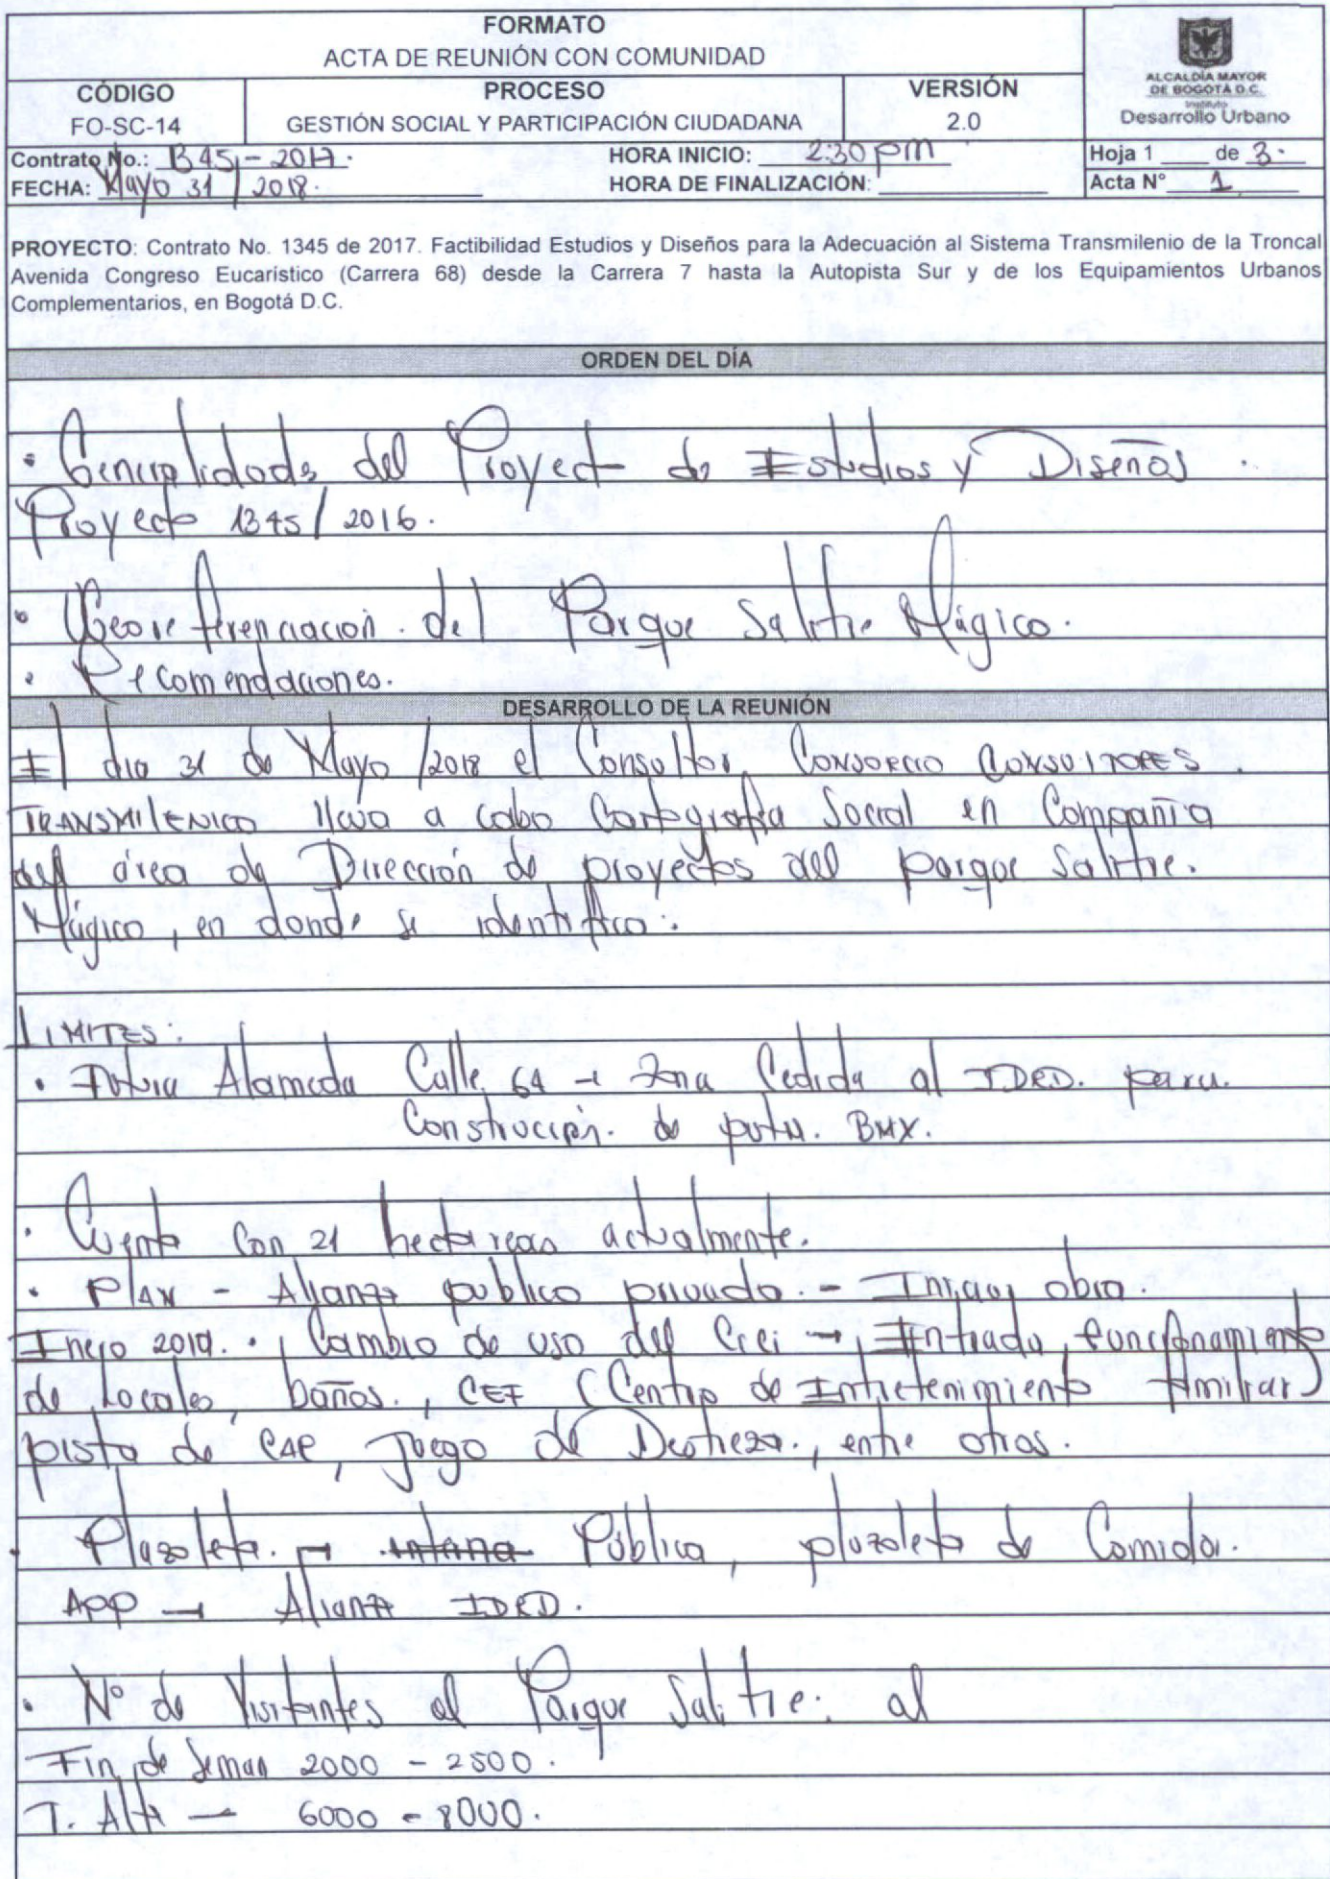 FORMATO
ACTA DE REUNIÓN CON COMUNIDAD
CÓDIGO
FO-SC-14
PROCESO
GESTIÓN SOCIAL Y PARTICIPACIÓN CIUDADANA
VERSIÓN
2.0
ALCALDÍA MAYOR
DE BOGOTÁ D.C.
Instituto
Desarrollo Urbano
Contrato No.: 1345 - 2017.
HORA INICIO: 2:30 pm
Hoja 1 de 3.
FECHA: Mayo 31 / 2018.
HORA DE FINALIZACIÓN:
Acta N° 1
PROYECTO: Contrato No. 1345 de 2017. Factibilidad Estudios y Diseños para la Adecuación al Sistema Transmilenio de la Troncal
Avenida Congreso Eucarístico (Carrera 68) desde la Carrera 7 hasta la Autopista Sur y de los Equipamientos Urbanos
Complementarios, en Bogotá D.C.
ORDEN DEL DÍA
• Generalidades del Proyecto de Estudios y Diseños.
Proyecto 1345 / 2016.
• Georeferenciación del Parque Salitre Mágico.
• Recomendaciones.
DESARROLLO DE LA REUNIÓN
El dia 31 de Mayo /2018 el Consultor CONSORCIO CONSULTORES
TRANSMILENIO lleva a cabo Cartografia Social en Compañia
del área de Dirección de proyectos del parque Salitre.
Mágico, en donde se identifico:
LIMITES:
• Futura Alameda Calle 64 → Zona Cedida al IDRD. para.
Construcción. de pista. BMX.
• Cuenta con 21 hectareas actualmente.
• PLAN - Alianza publico privada. - Iniciar obra.
Enero 2019. . Cambio de uso del → Entrada, funcionamiento
de Locales, baños., CEF (Centro de Entretenimiento Familiar)
pista de, Juego de Destreza., entre otros.
• Plazoleta. → Pública, plazoleta de Comida.
APP → Alianza IDRD.
• N° de Visitantes al Parque Salitre: al
Fin de Seman 2000 - 2500.
T. Alta — 6000 - 8000.